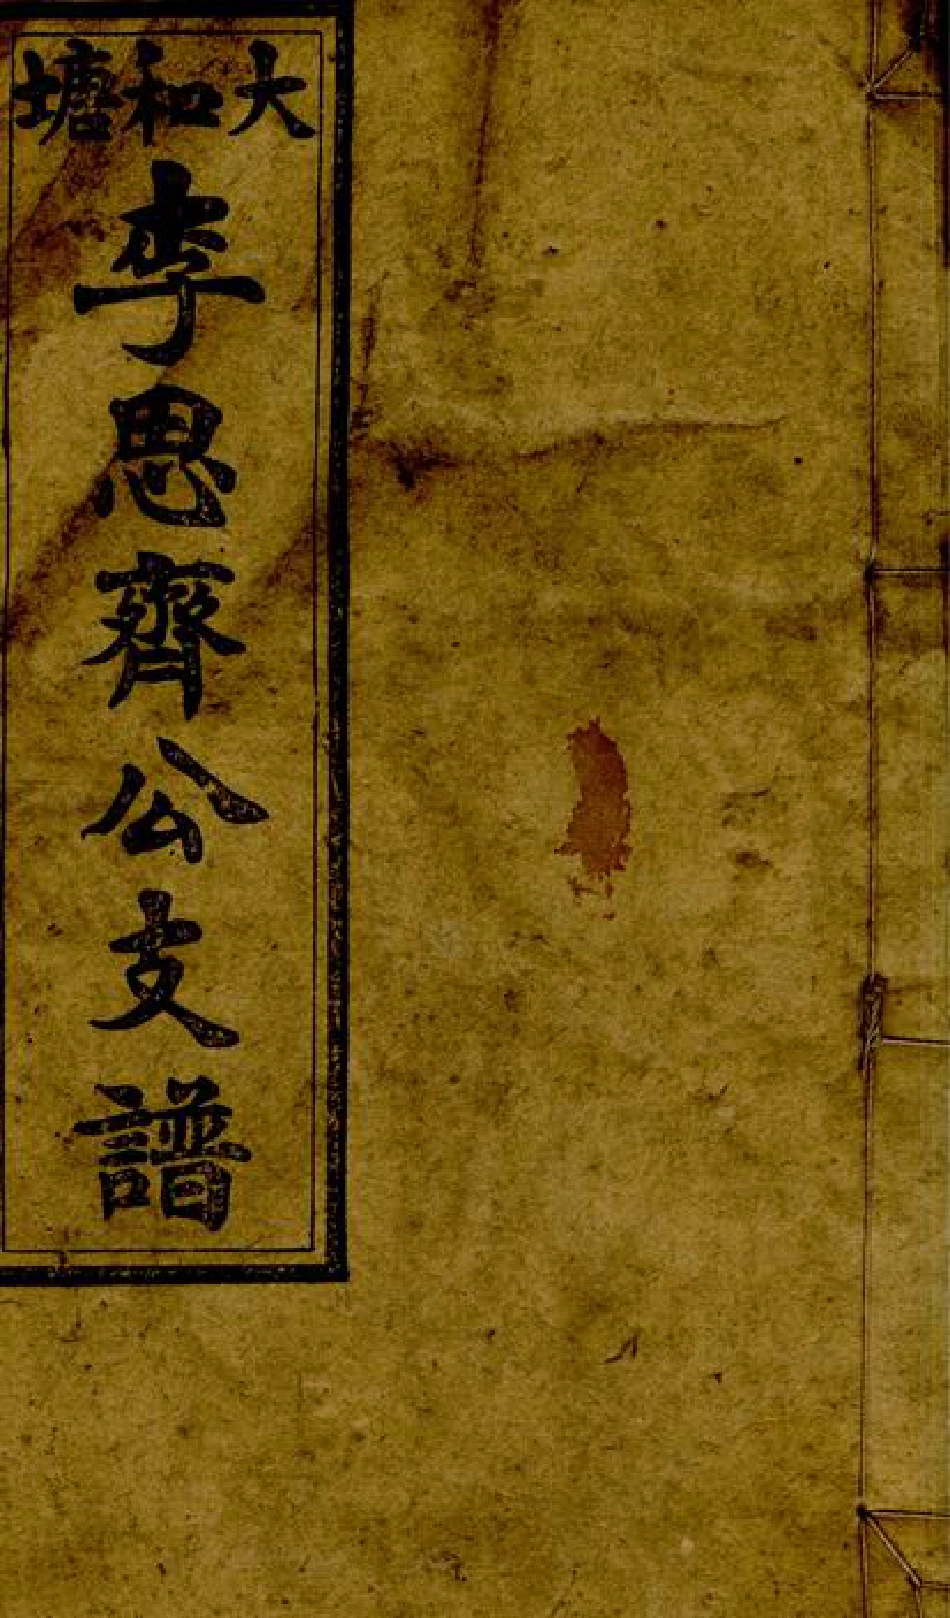 大和塘
李思齊公支譜